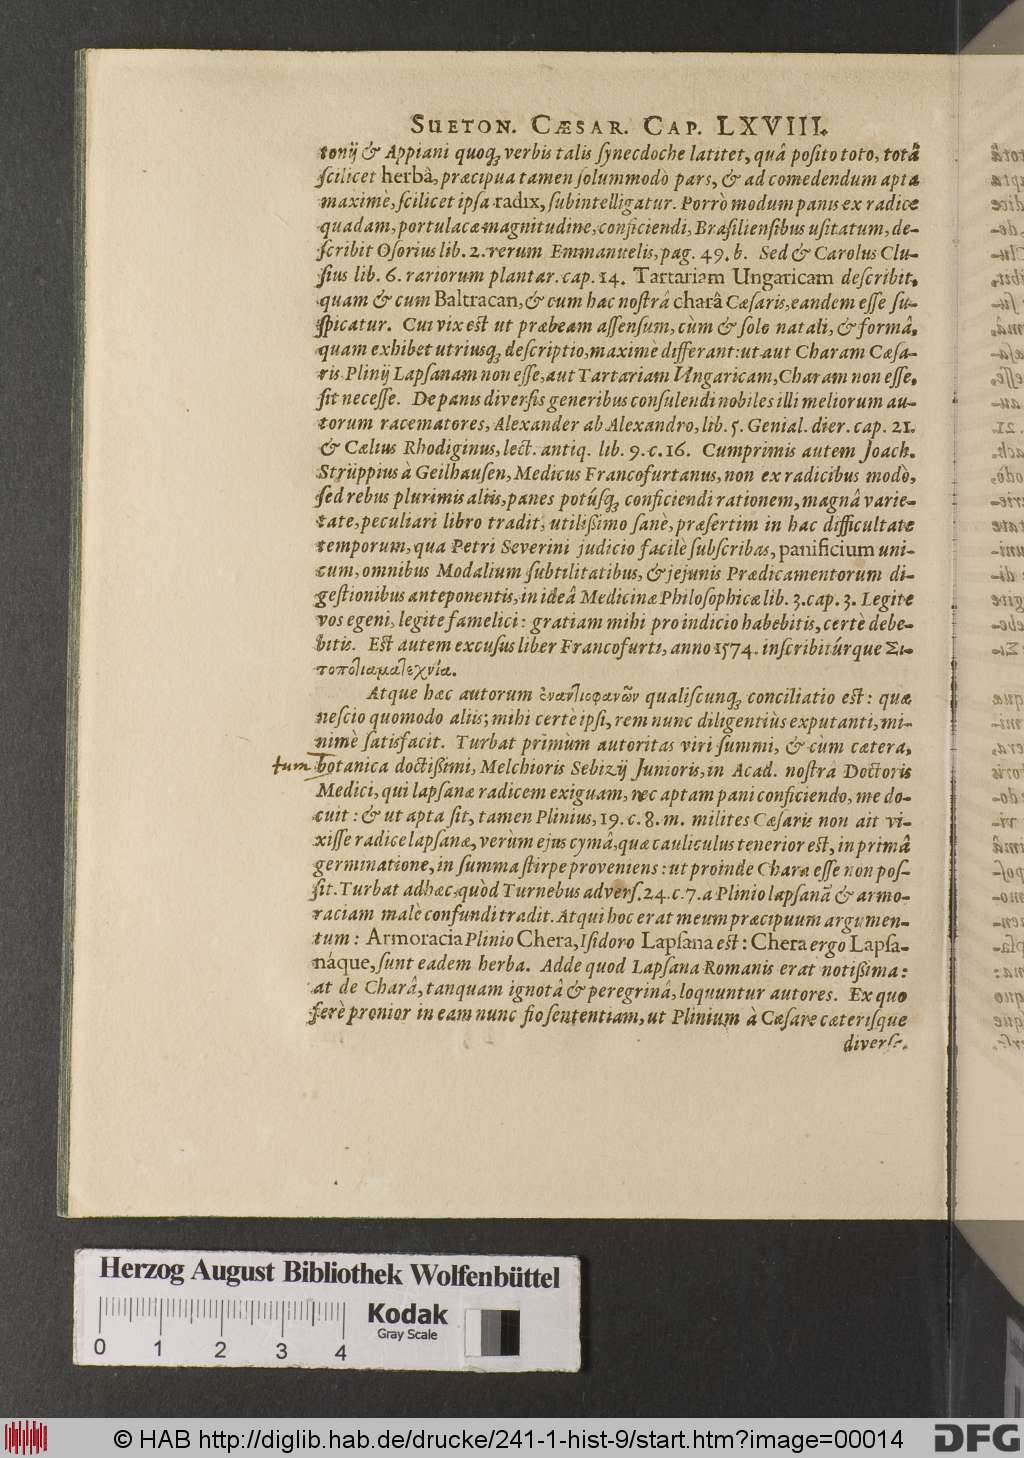 SUETON. CÆSAR. CAP. LXVIII.
tonij & Appiani quoq; verbis talis ſynecdoche latitet, quâ poſito toto, totâ
ſcilicet herbâ, præcipua tamen ſolummodò pars, & ad comedendum apta
maximè, ſcilicet ipſa radix, ſubintelligatur. Porrò modum panis ex radice
quadam, portulacæ magnitudine, conficiendi, Braſilienſibus uſitatum, de-
ſcribit Oſorius lib. 2. rerum Emmanuelis, pag. 49. b. Sed & Carolus Clu-
ſius lib. 6. rariorum plantar. cap. 14. Tartariam Ungaricam deſcribit,
quam & cum Baltracan, & cum hac noſtrâ charâ Cæſaris, eandem eſſe ſu-
ſpicatur. Cui vix eſt ut præbeam aſſenſum, cùm & ſolo natali, & formâ,
quam exhibet utriusq; deſcriptio, maximè differant: ut aut Charam Cæſa-
ris Plinij Lapſanam non eſſe, aut Tartariam Ungaricam, Charam non eſſe,
ſit neceſſe. De panis diverſis generibus conſulendi nobiles illi meliorum au-
torum racematores, Alexander ab Alexandro, lib. 5. Genial. dier. cap. 21.
& Cælius Rhodiginus, lect. antiq. lib. 9. c. 16. Cumprimis autem Joach.
Strüppius à Geilhauſen, Medicus Francofurtanus, non ex radicibus modò,
ſed rebus plurimis aliis, panes potúſq; conficiendi rationem, magnâ varie-
tate, peculiari libro tradit, utilißimo ſanè, præſertim in hac difficultate
temporum, qua Petri Severini judicio facilè ſubſcribas, panificium uni-
cum, omnibus Modalium ſubtilitatibus, & jejunis Prædicamentorum di-
geſtionibus anteponentis, in ideâ Medicinæ Philoſophicæ lib. 3. cap. 3. Legite
vos egeni, legite famelici: gratiam mihi pro indicio habebitis, certè debe-
bitis. Eſt autem excuſus liber Francofurti, anno 1574. inſcribitúrque Σι-
τοποτιαματεχνία.
Atque hæc autorum ἐναντιοφανῶν qualiſcunq; conciliatio eſt: quæ
neſcio quomodo aliis; mihi certè ipſi, rem nunc diligentiùs exputanti, mi-
nimè ſatisfacit. Turbat primùm autoritas viri ſummi, & cùm cætera,
tum botanica doctißimi, Melchioris Sebizij Junioris, in Acad. noſtra Doctoris
Medici, qui lapſanæ radicem exiguam, nec aptam pani conficiendo, me do-
cuit: & ut apta ſit, tamen Plinius, 19. c. 8. m. milites Cæſaris non ait vi-
xiſſe radice lapſanæ, verùm ejus cymâ, quæ cauliculus tenerior eſt, in primâ
germinatione, in ſumma ſtirpe proveniens: ut proinde Chara eſſe non poſ-
ſit. Turbat adhæc, quòd Turnebus adverſ. 24. c. 7. a Plinio lapſanã & armo-
raciam malè confundi tradit. Atqui hoc erat meum præcipuum argumen-
tum: Armoracia Plinio Chera, Iſidoro Lapſana eſt: Chera ergo Lapſa-
náque, ſunt eadem herba. Adde quod Lapſana Romanis erat notißima:
at de Charâ, tanquam ignotâ & peregrinâ, loquuntur autores. Ex quo
ferè pronior in eam nunc fio ſententiam, ut Plinium à Cæſare cæteriſque
diverſæ.
Herzog August Bibliothek Wolfenbüttel
Kodak
Gray Scale
0 1 2 3 4
© HAB http://diglib.hab.de/drucke/241-1-hist-9/start.htm?image=00014
DFG